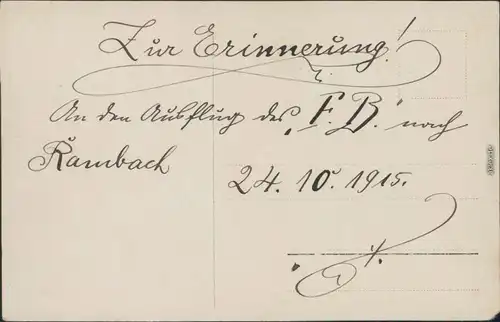 Zur Erinnerung!
An den Ausflug des „F. B.“ nach
Rambach
24. 10. 1915.